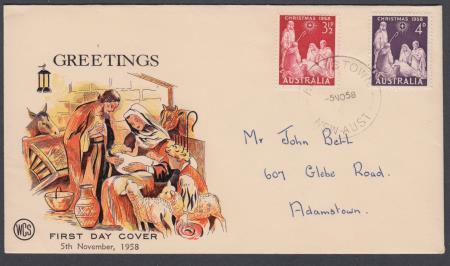 GREETINGS
CHRISTMAS 1958
3½D
AUSTRALIA
CHRISTMAS 1958
4D
AUSTRALIA
ADAMSTOWN
-5NO58
N.S.W-AUST
Mr John Bell
607 Glebe Road.
Adamstown.
WCS
FIRST DAY COVER
5th November, 1958